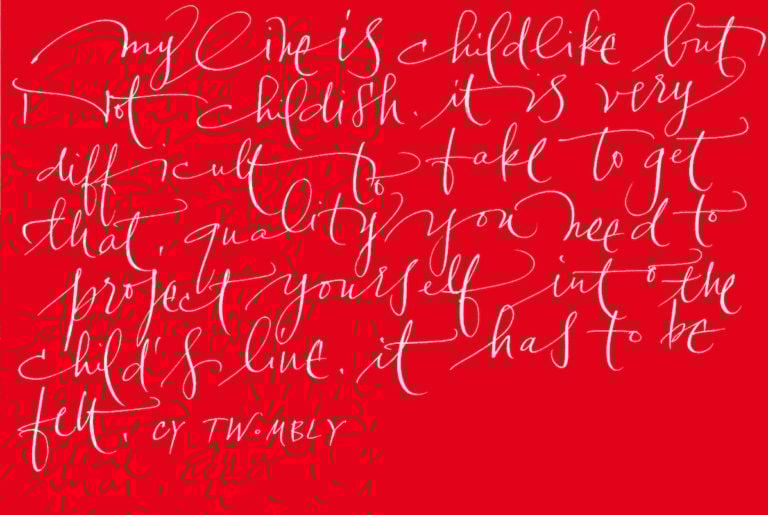 my line is childlike but
not childish. it is very
difficult to fake to get
that. quality you need to
project yourself into the
child's line. it has to be
felt. CY TWOMBLY